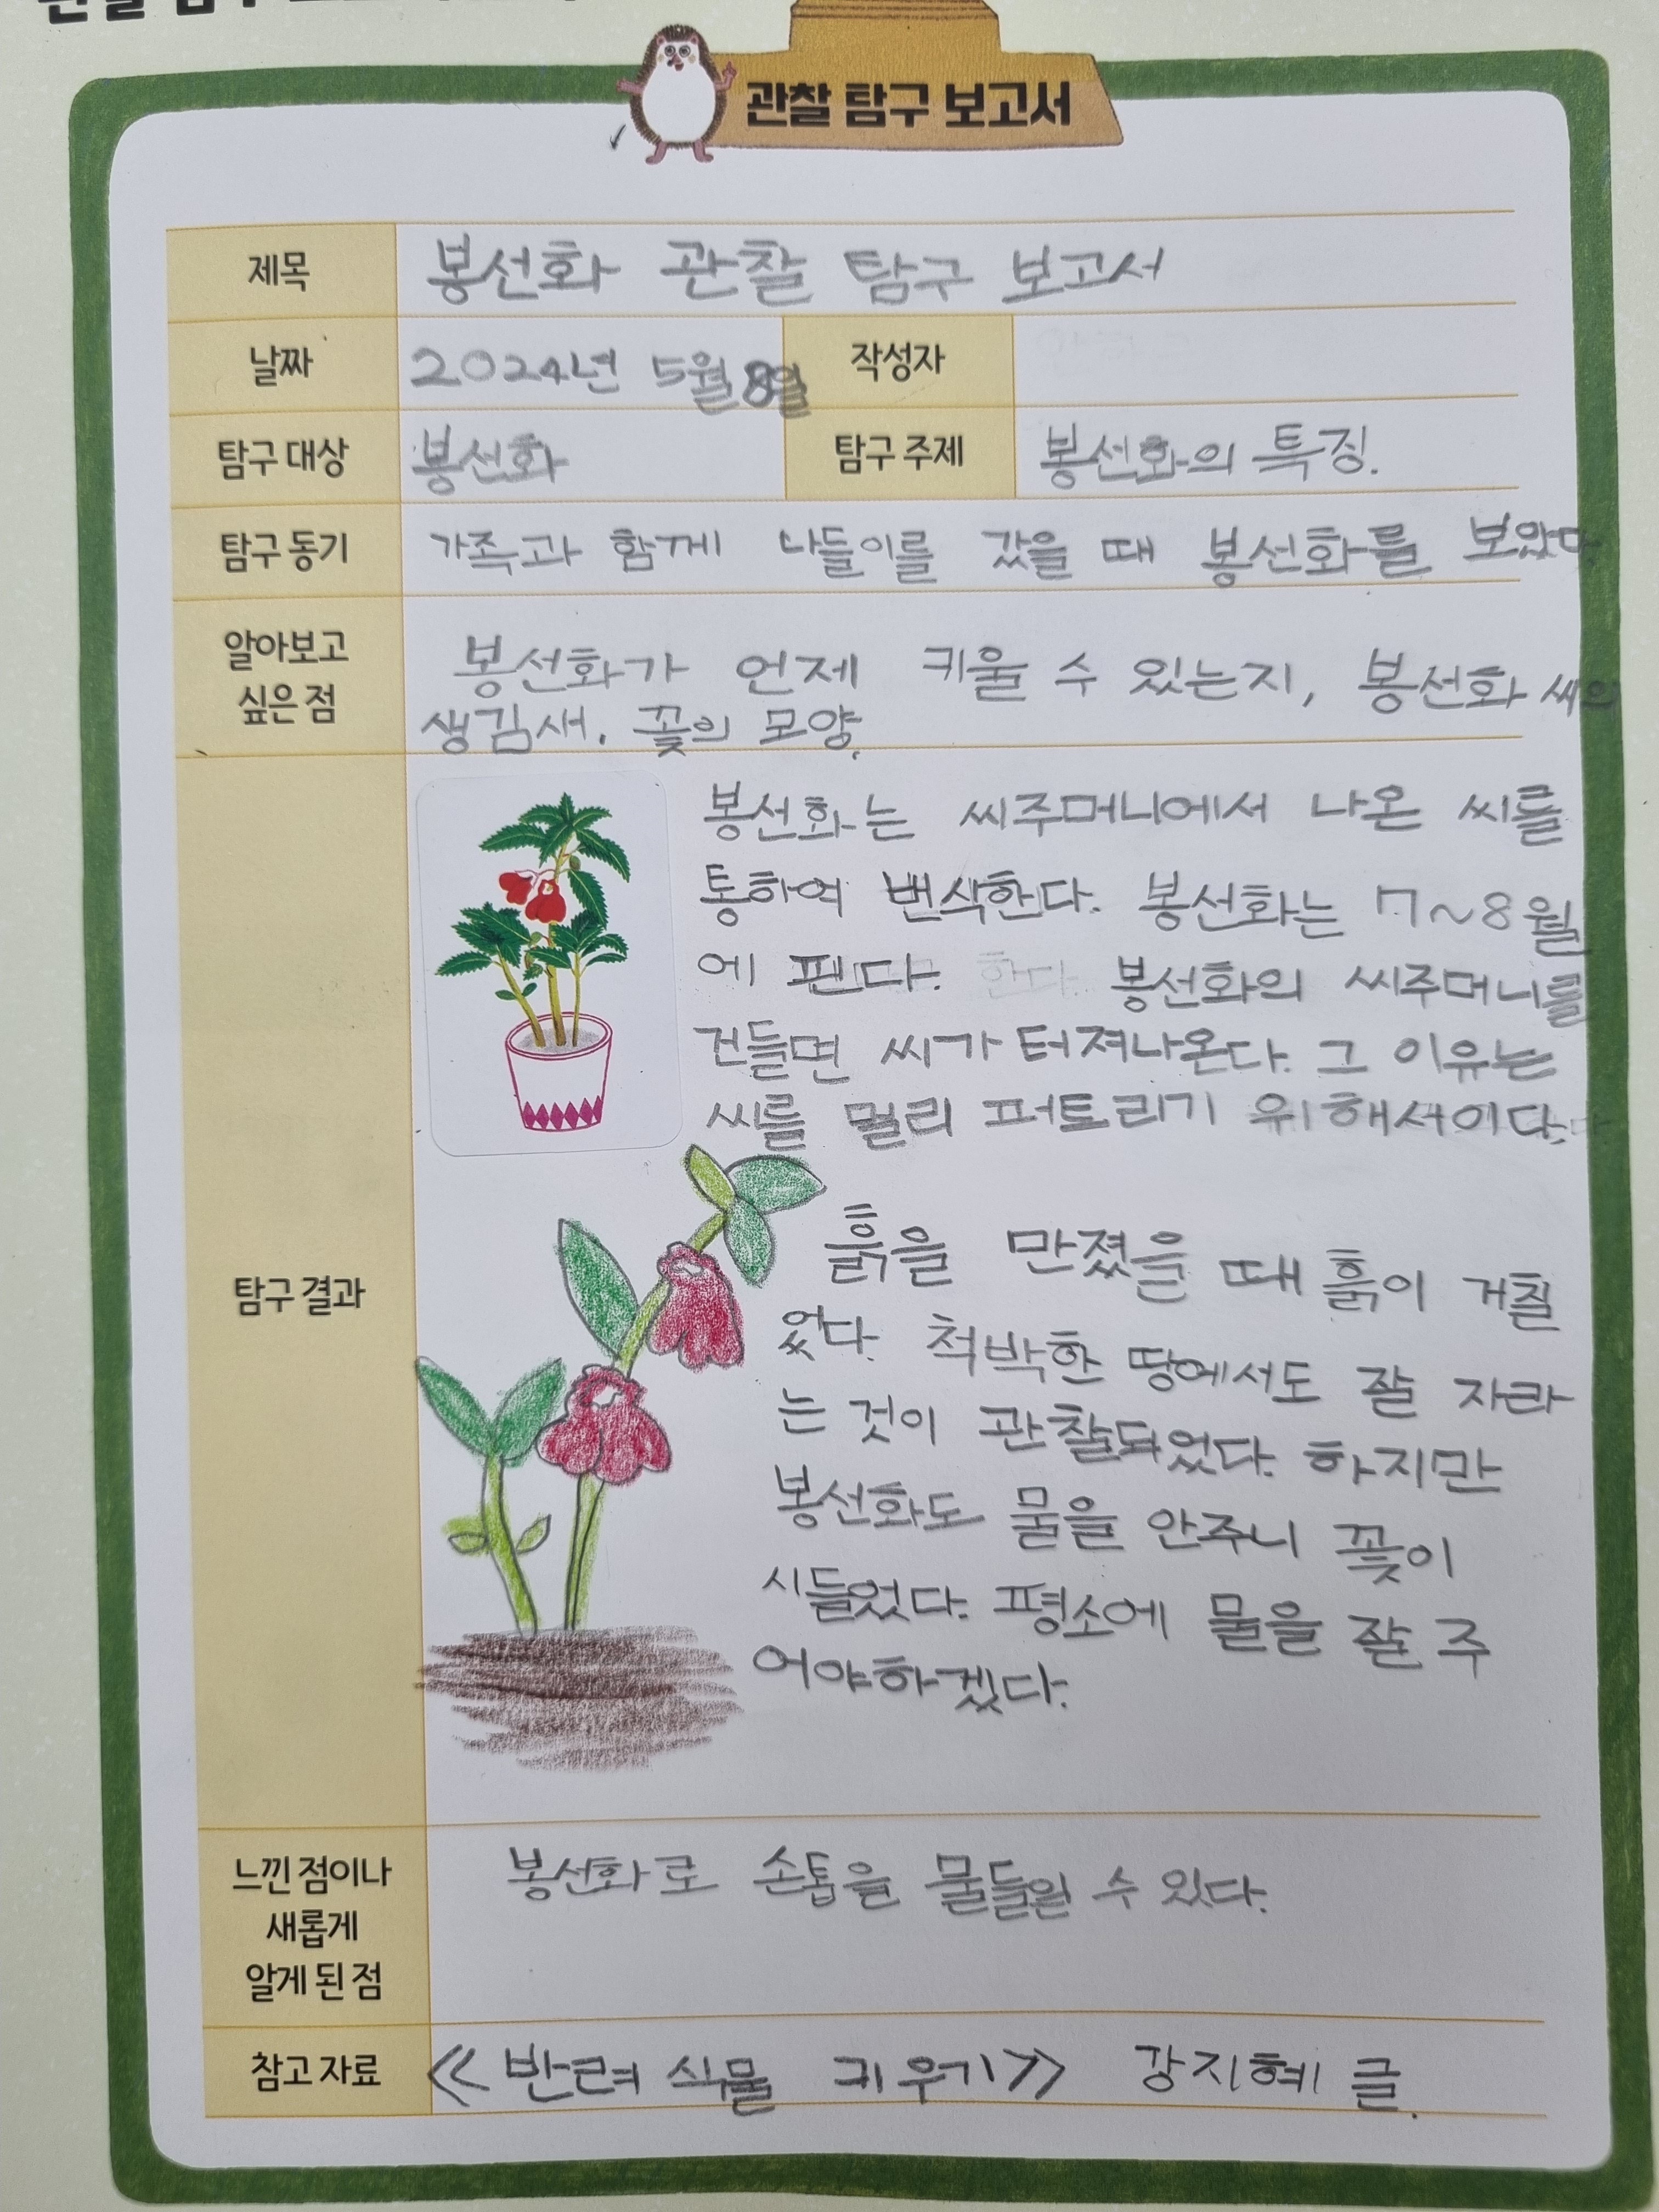 관찰 탐구 보고서
제목 봉선화 관찰 탐구 보고서
날짜 2024년 5월 8일 작성자
탐구 대상 봉선화 탐구 주제 봉선화의 특징.
탐구 동기 가족과 함께 나들이를 갔을 때 봉선화를 보았다.
알아보고
싶은 점
봉선화가 언제 키울 수 있는지, 봉선화 씨의
생김새. 꽃의 모양.
탐구 결과
봉선화는 씨주머니에서 나온 씨를
통하여 번식한다. 봉선화는 7~8월
에 핀다. 한다. 봉선화의 씨주머니를
건들면 씨가 터져나온다. 그 이유는
씨를 멀리 퍼토리기 위해서이다.
흙을 만졌을 때 흙이 거칠
었다. 척박한 땅에서도 잘 자라
는 것이 관찰되었다. 하지만
봉선화도 물을 안주니 꽃이
시들었다. 평소에 물을 잘 주
어야하겠다.
느낀 점이나
새롭게
알게 된 점
봉선화로 손톱을 물들일 수 있다.
참고 자료 ≪반려 식물 키우기≫ 강지혜 글.